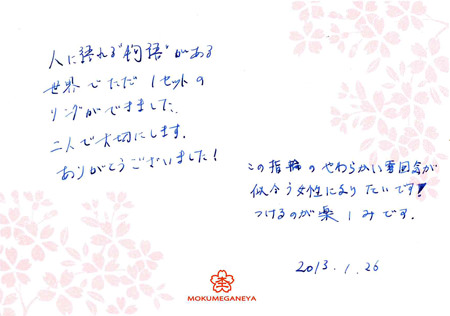 人に語れる"物語"がある
世界でただ1セットの
リングができました。
二人で大切にします。
ありがとうございました!
この指輪のやわらかい雰囲気が
似合う女性になりたいです!
つけるのが楽しみです。
2013.1.26
MOKUMEGANEYA